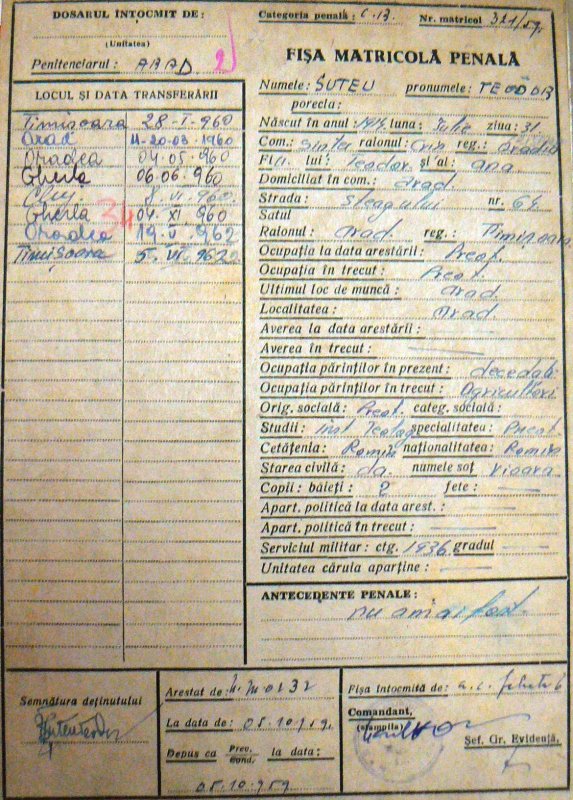 DOSARUL ÎNTOCMIT DE :
(Unitatea)
Penitenciarul : ARAD.
Categoria penală : C.R.
Nr. matricol 321/59.
FIȘA MATRICOLĂ PENALĂ
LOCUL ȘI DATA TRANSFERĂRII
Timisoara 28-I-960
Arad 20-03-1960
Oradea 04.05.960
Gherla 06.06.960
Cluj VI 960
Gherla 04. XI 960
Oradea 19. V 962
Timișoara 5. VI. 962
24
Numele : SUTEU pronumele : TEODOR
porecla :
Născut în anul : luna : Iulie ziua : 31
Com.: raionul : Criș reg.: Oradia
Fiul lui : Teodor. și 'al : Ana.
Domiciliat în com.: Arad.
Strada : Steagului nr. 6
Satul
Raionul : Arad reg.: Timișoara
Ocupația la data arestării : Preot.
Ocupația în trecut : Preot.
Ultimul loc de muncă : Arad
Localitatea : Arad.
Averea la data arestării :
Averea în trecut :
Ocupația părinților în prezent : decedați
Ocupația părinților în trecut : Agricultori
Orig. socială : Preot. categ. socială :
Studii : Inst Teolog specialitatea : Preot
Cetățenia : Română naționalitatea : Română
Starea civilă : da. numele soț Vioara
Copii : băieți : 2 fete :
Apart. politică la data arest. :
Apart. politică în trecut :
Serviciul militar : ctg. 1936 gradul
Unitatea căruia aparține :
ANTECEDENTE PENALE :
nu am fost.
Semnătura deținutului
Arestat de :
La data de : 05.10.959.
Depus ca Prev. Cond. la data :
05.10.959
Fișa întocmită de :
Comandant,
(ștampila)
Șef. Gr. Evidență,